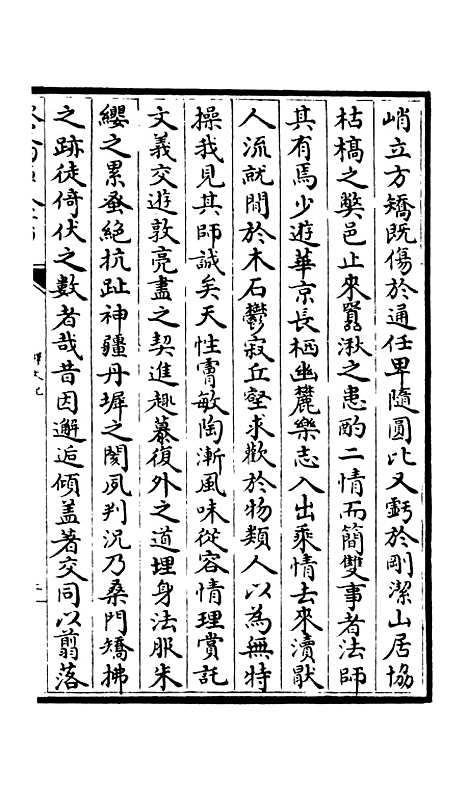 峭立方矯既傷於通任卑隨圓比又虧於剛潔山居協
枯槁之獘邑止來囂湫之患酌二情而簡雙事者法師
其有焉少遊華京長栖幽麓樂志入出乘情去來瀆猒
人流就閒於木石鬱寂丘壑求歡於物類人以為無特
操我見其師誠矣天性膏敏陶漸風味從容情理賞託
文義交遊敦亮盡之契進趣慕復外之道埋身法服朱
纓之累蚤絕抗趾神疆丹墀之闋夙判況乃桑門矯拂
之跡徒倚伏之數者哉昔因邂逅傾盖著交同以翦落
釋文紀